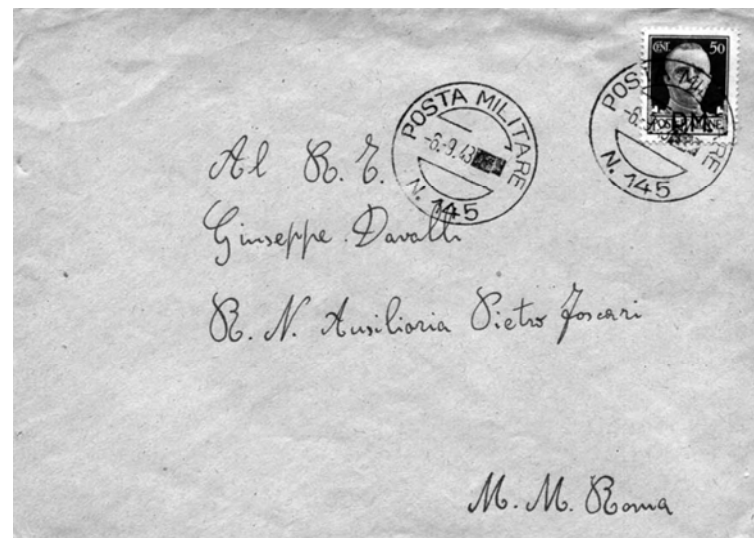 CENT. 50
POSTE ITALIANE
P.M.
POSTA MILITARE
-6.-9.43
N. 145
POSTA MILITARE
-6.-9
N. 145
Al R. T.
Giuseppe Davalli
R. N. Ausiliaria Pietro Foscari
M. M. Roma